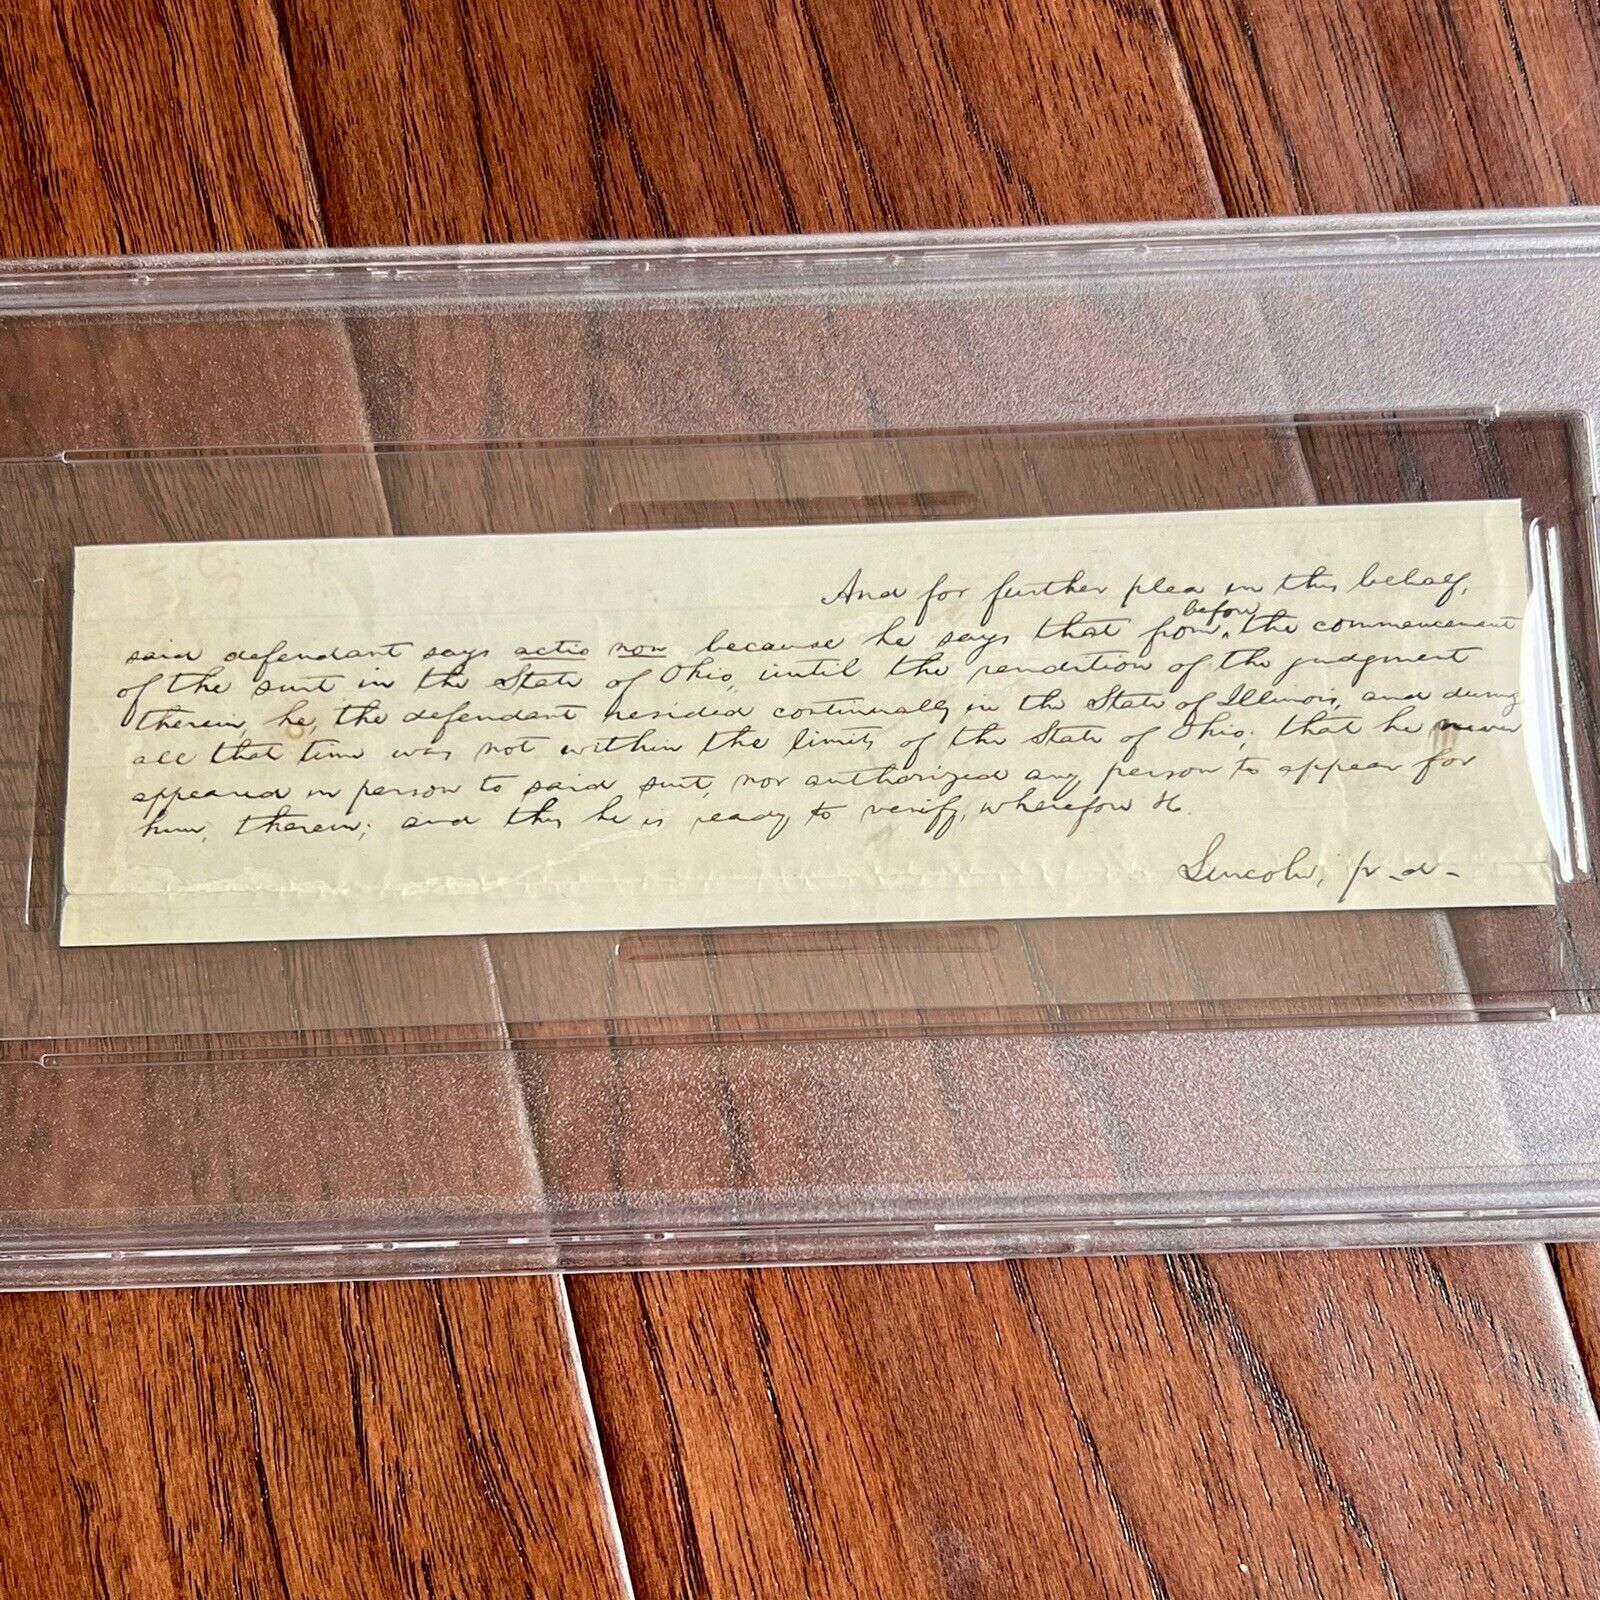 And for further plea in this behalf,
said defendant says actio non because he says that from before the commencement
of the suit in the State of Ohio, until the rendition of the judgment
therein, he, the defendant resided continually in the State of Illinois, and during
all that time was not within the limits of the State of Ohio; that he never
appeared in person to said suit, nor authorized any person to appear for
him, therein; and this he is ready to verify, wherefore &c.
Lincoln, p-d-